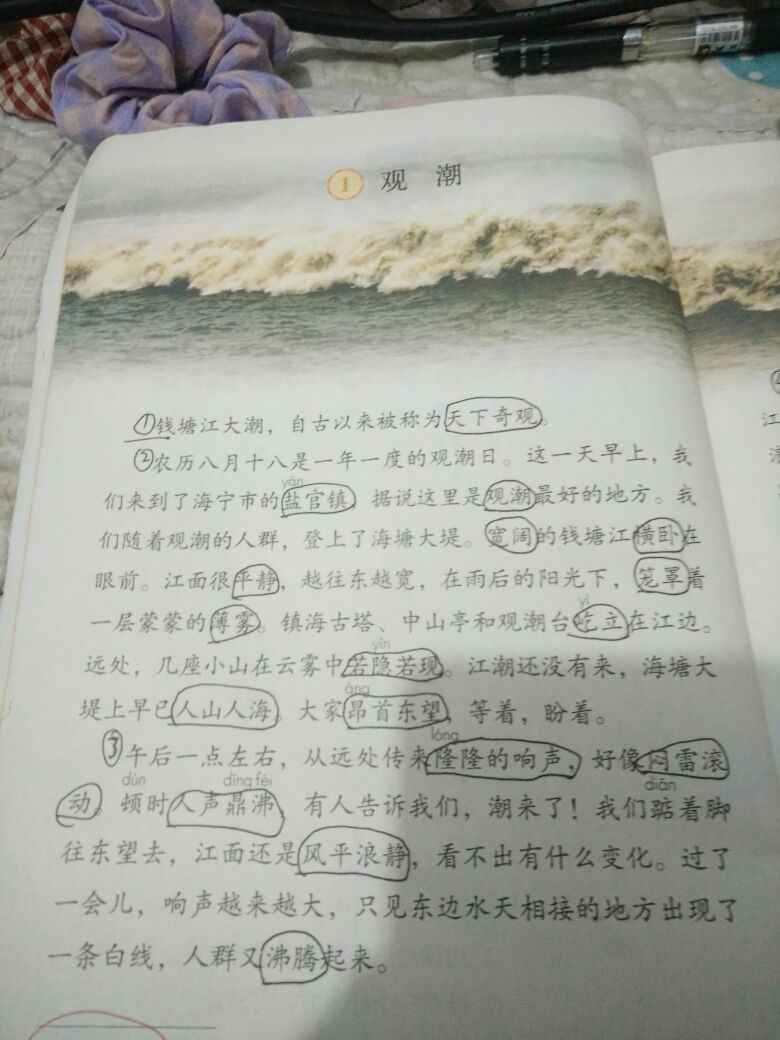 1 观 潮
①钱塘江大潮，自古以来被称为天下奇观。
②农历八月十八是一年一度的观潮日。这一天早上，我
yán
们来到了海宁市的盐官镇，据说这里是观潮最好的地方。我
们随着观潮的人群，登上了海塘大堤。宽阔的钱塘江横卧在
眼前。江面很平静，越往东越宽，在雨后的阳光下，笼罩着
yì
一层蒙蒙的薄雾。镇海古塔、中山亭和观潮台屹立在江边。
yǐn
远处，几座小山在云雾中若隐若现。江潮还没有来，海塘大
áng
堤上早已人山人海。大家昂首东望，等着，盼着。
lóng
③午后一点左右，从远处传来隆隆的响声，好像闷雷滚
dùn dǐng fèi diǎn
动。顿时人声鼎沸，有人告诉我们，潮来了！我们踮着脚
往东望去，江面还是风平浪静，看不出有什么变化。过了
一会儿，响声越来越大，只见东边水天相接的地方出现了
一条白线，人群又沸腾起来。
江